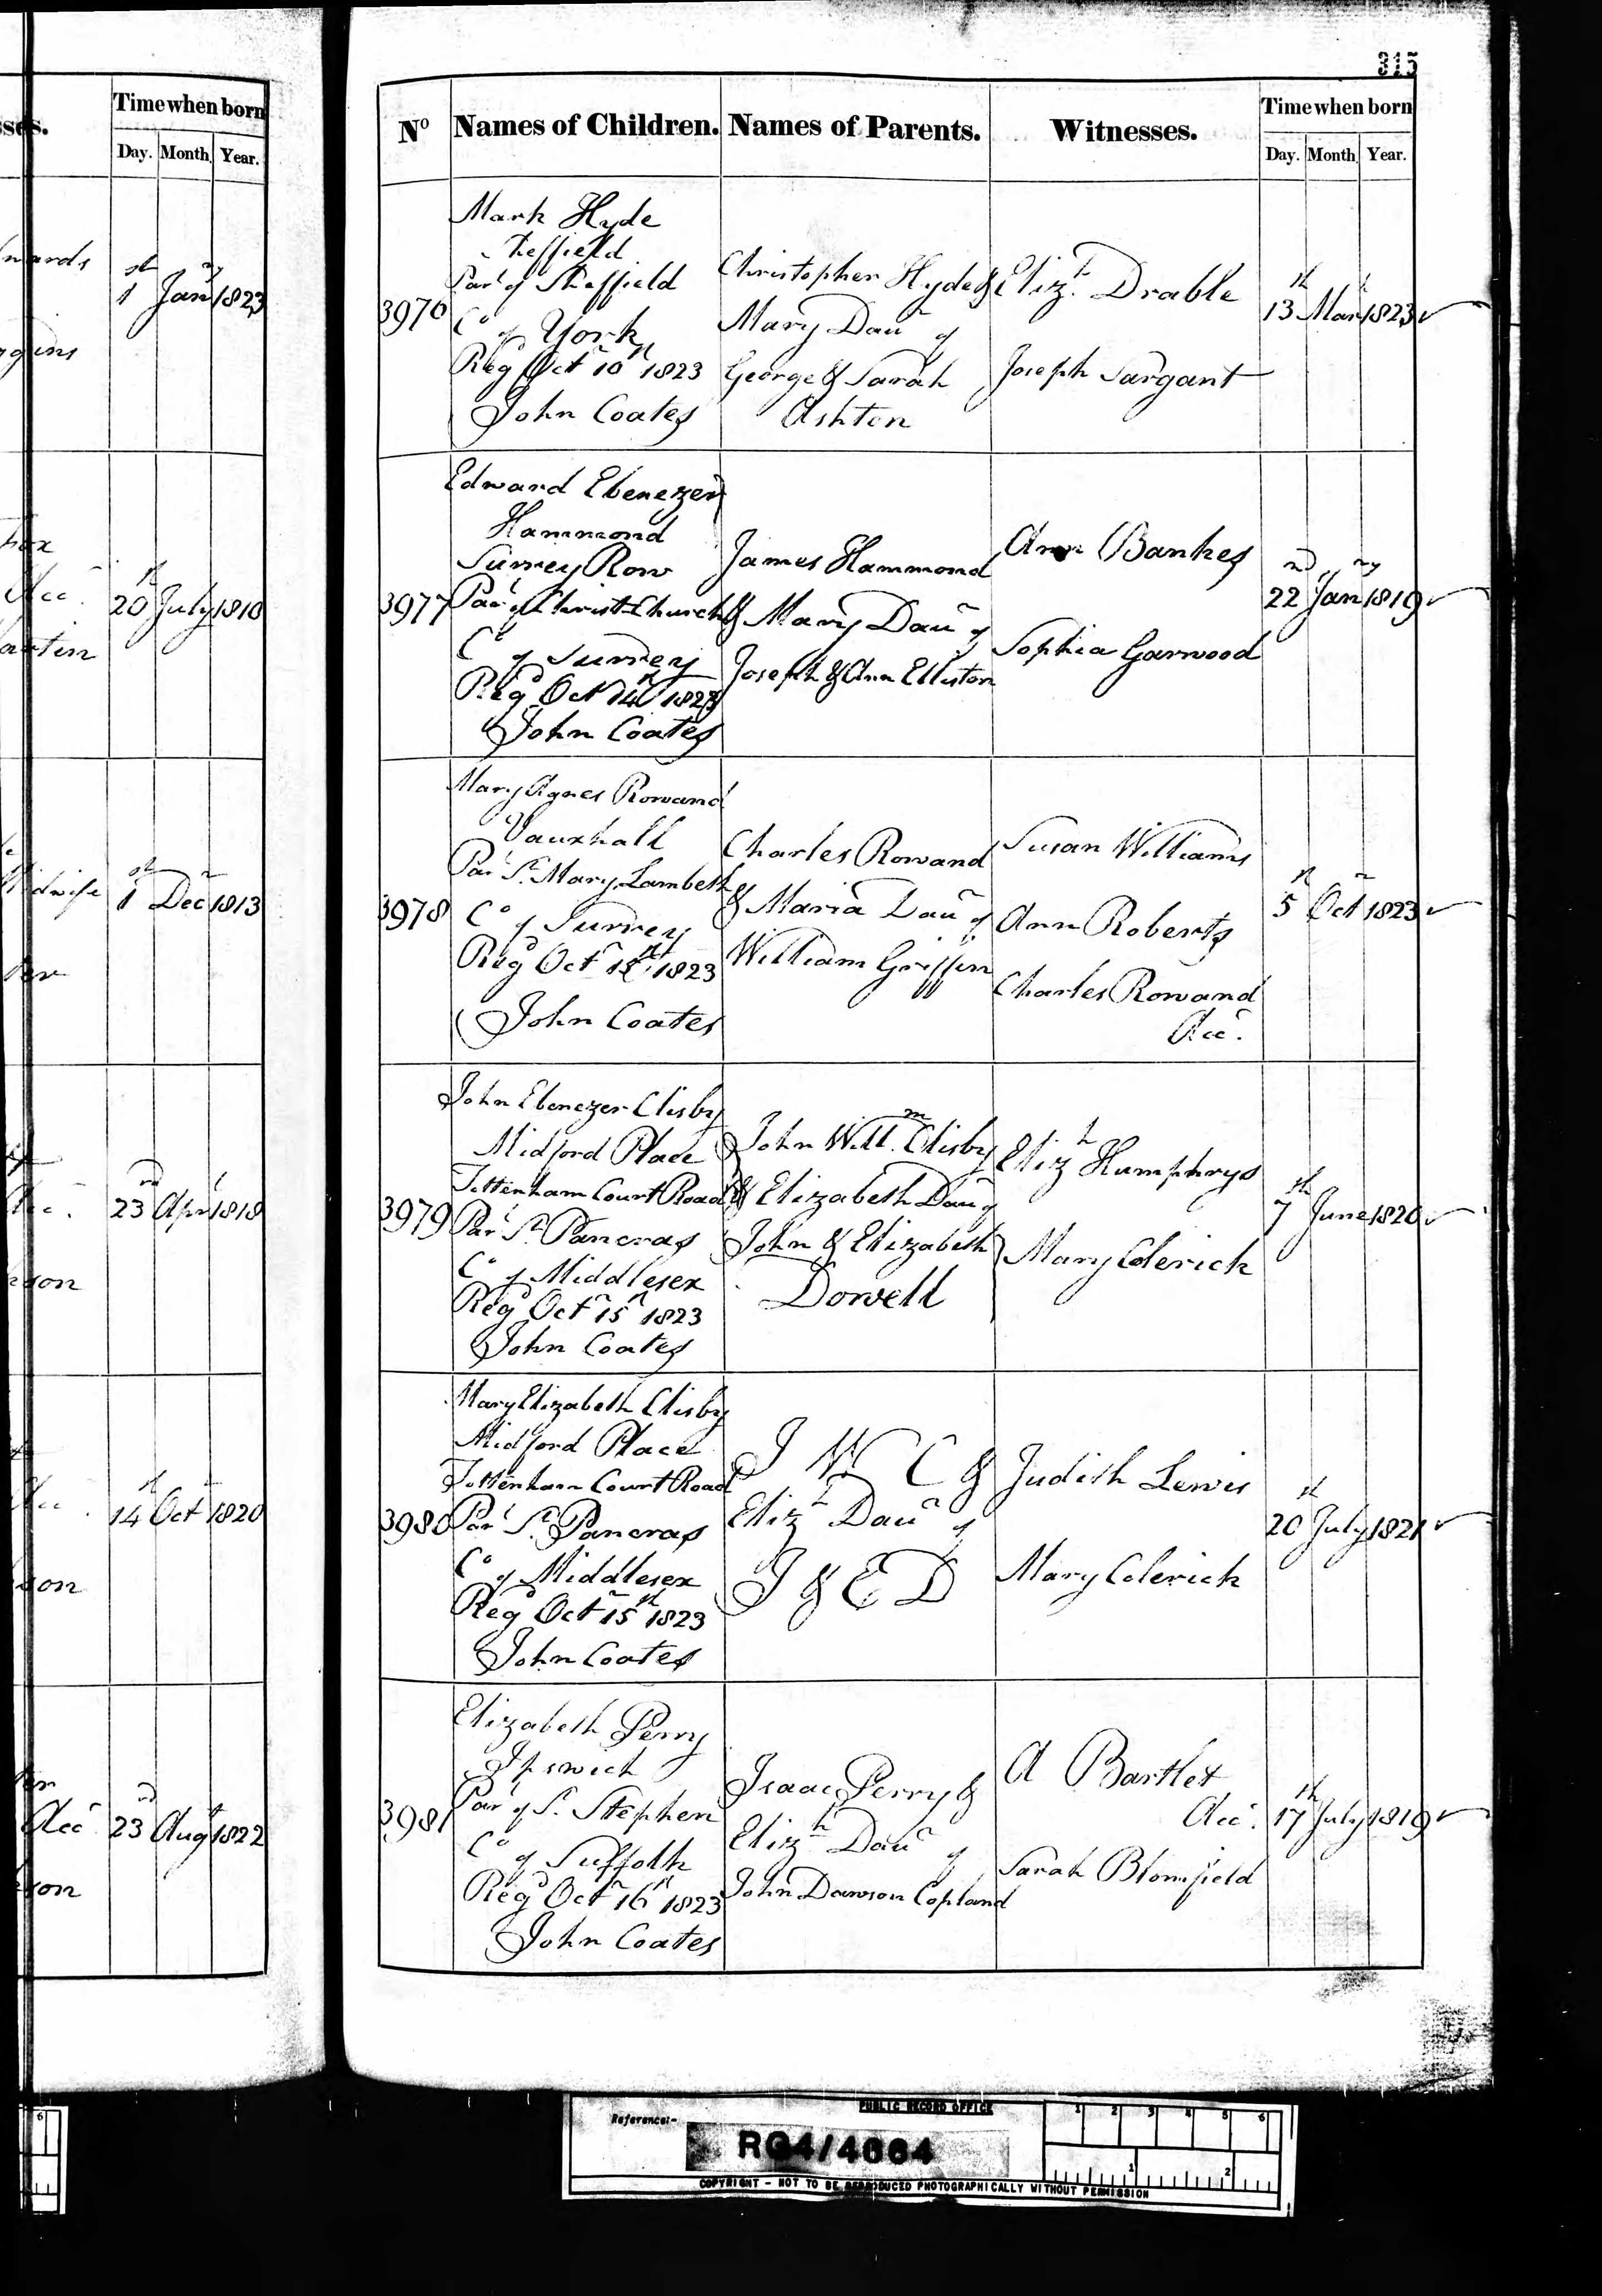 315
Time when born
Day. Month. Year.
1st Jany 1823
Acc.
20th July 1810
Midwife
1st Dec 1813
23rd Apr 1818
14th Oct 1820
Acc 23rd Augt 1822
No Names of Children. Names of Parents. Witnesses. Time when born
Day. Month Year.
3976
Mark Hyde
Sheffield
Par of Sheffield
Co of York
Regd Octr 10th 1823
John Coates
Christopher Hyde &
Mary Daur of
George & Sarah
Ashton
Elizh Drable
Joseph Sargant
13th Mar 1823
3977
Edward Ebenezer
Hammond
Surrey Row
Par of Christ Church
Co of Surrey
Regd Octr 14th 1823
John Coates
James Hammond
& Mary Daur of
Joseph & Ann Elliston
Ann Bankes
Sophia Garwood
22nd Jany 1819
3978
Mary Agnes Rowand
Vauxhall
Par St Mary Lambeth
Co of Surrey
Regd Octr 1823
John Coates
Charles Rowand
& Maria Daur of
William Griffin
Susan Williams
Ann Roberts
Charles Rowand
Acc.
5th Octr 1823
3979
John Ebenezer Clisby
Midford Place
Tottenham Court Road
Par St Pancras
Co of Middlesex
Regd Octr 15th 1823
John Coates
John Willm Clisby
& Elizabeth Daur of
John & Elizabeth
Dowell
Elizh Humphrys
Mary Colerick
7th June 1820
3980
Mary Elizabeth Clisby
Midford Place
Tottenham Court Road
Par St Pancras
Co of Middlesex
Regd Octr 15th 1823
John Coates
J W C &
Elizh Daur of
J & E D
Judith Lewis
Mary Colerick
20th July 1821
3981
Elizabeth Perry
Ipswich
Par of St Stephen
Co of Suffolk
Regd Octr 16th 1823
John Coates
Isaac Perry &
Elizh Daur of
John Dawson Copland
A Bartlet
Acc.
Sarah Blomfield
17th July 1819
PUBLIC RECORD OFFICE
Reference:-
RG4/4664
COPYRIGHT - NOT TO BE REPRODUCED PHOTOGRAPHICALLY WITHOUT PERMISSION